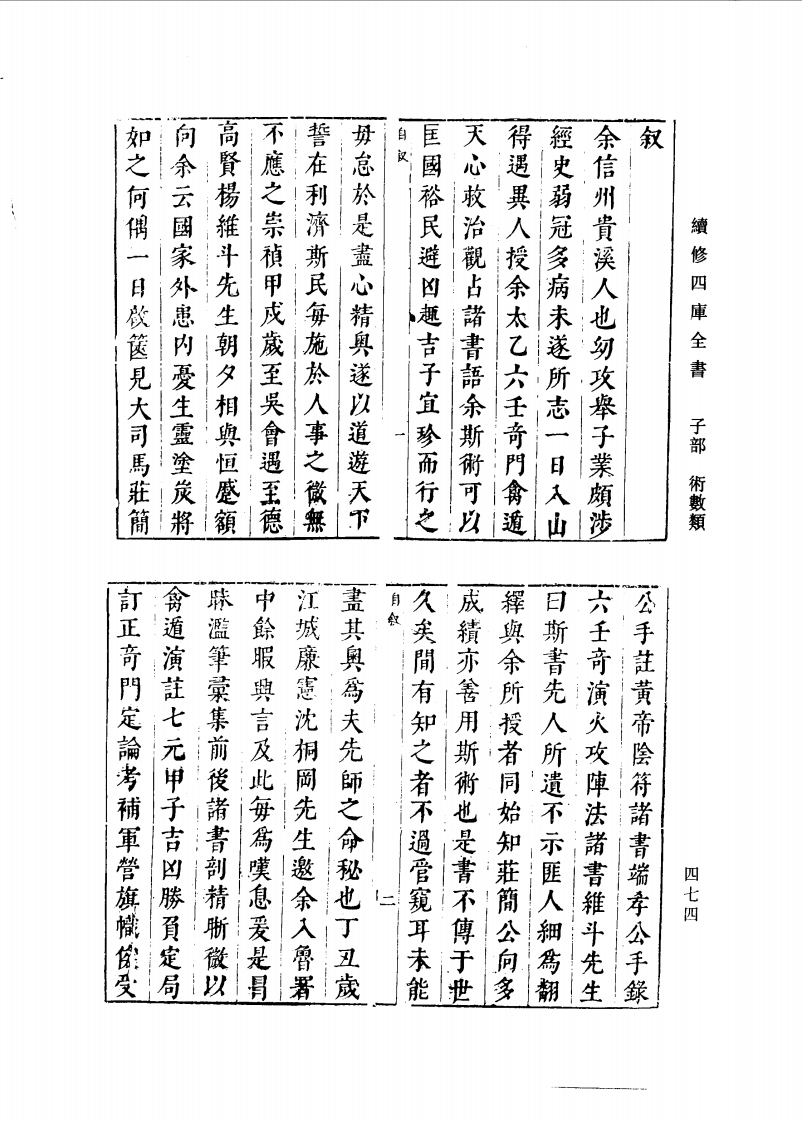 續修四庫全書　子部　術數類
四七四
叙
余信州貴溪人也幼攻舉子業頗涉
經史弱冠多病未遂所志一日入山
得遇異人授余太乙六壬奇門禽遁
天心救治觀占諸書語余斯術可以
匡國裕民避凶趣吉子宜珍而行之
自叙
一
毋怠於是盡心精奥遂以道遊天下
誓在利濟斯民每施於人事之微無
不應之崇禎甲戌歲至吳會遇至德
高賢楊維斗先生朝夕相與恒蹙額
向余云國家外患内憂生靈塗炭將
如之何偶一日啟篋見大司馬莊簡
公手註黄帝陰符諸書端孝公手錄
六壬奇演火攻陣法諸書維斗先生
曰斯書先人所遺不示匪人細為翻
繹與余所授者同始知莊簡公向多
成績亦善用斯術也是書不傳于世
久矣間有知之者不過管窺耳未能
自叙
二
盡其奥為夫先師之命秘也丁丑歲
江城廉憲沈桐岡先生邀余入魯署
中餘暇與言及此每為嘆息爰是昌
昧濫筆彙集前後諸書剖精晰微以
禽遁演註七元甲子吉凶勝負定局
訂正奇門定論考補軍營旗幟受